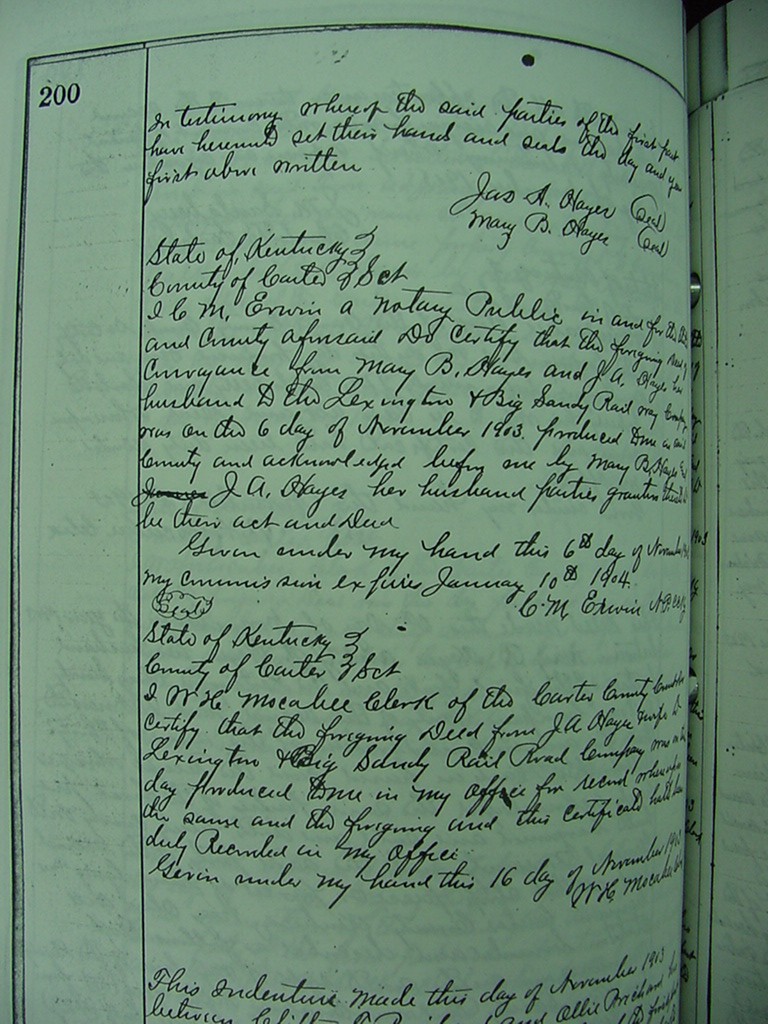 200
In testimony whereof the said parties of the first part
have hereunto set their hands and seals the day and year
first above written
Jas A. Hayes (Seal)
Mary B. Hayes (Seal)
State of Kentucky }
County of Carter } Sct
I C M. Erwin a Notary Public in and for the
and County aforesaid Do Certify that the foregoing
Conveyance from Mary B. Hayes and J. A. Hayes her
husband to the Lexington & Big Sandy Rail way
was on the 6 day of November 1903. produced to me in said
County and acknowledged before me by Mary B. Hayes and
J. A. Hayes her husband parties grantors
be their act and Deed
Given under my hand this 6th day of November
My Commission expires January 10th 1904.
C. M. Erwin N.P.
(Seal)
State of Kentucky }
County of Carter } Sct
I W H Mocabee Clerk of the Carter County
certify that the foregoing Deed from J A Hayes
Lexington & Big Sandy Rail Road Company was on
day produced to me in my office for record whereupon
the same and the foregoing and this certificate hath been
duly Recorded in my office
Given under my hand this 16 day of November
W H Mocabee
This Indenture made this day of November 1903
between and Ollie Prichard